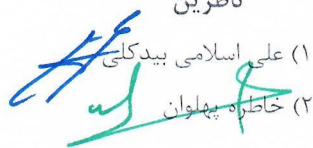 ناظرین
۱) علی اسلامی بیدکلی
۲) خاطره پهلوان